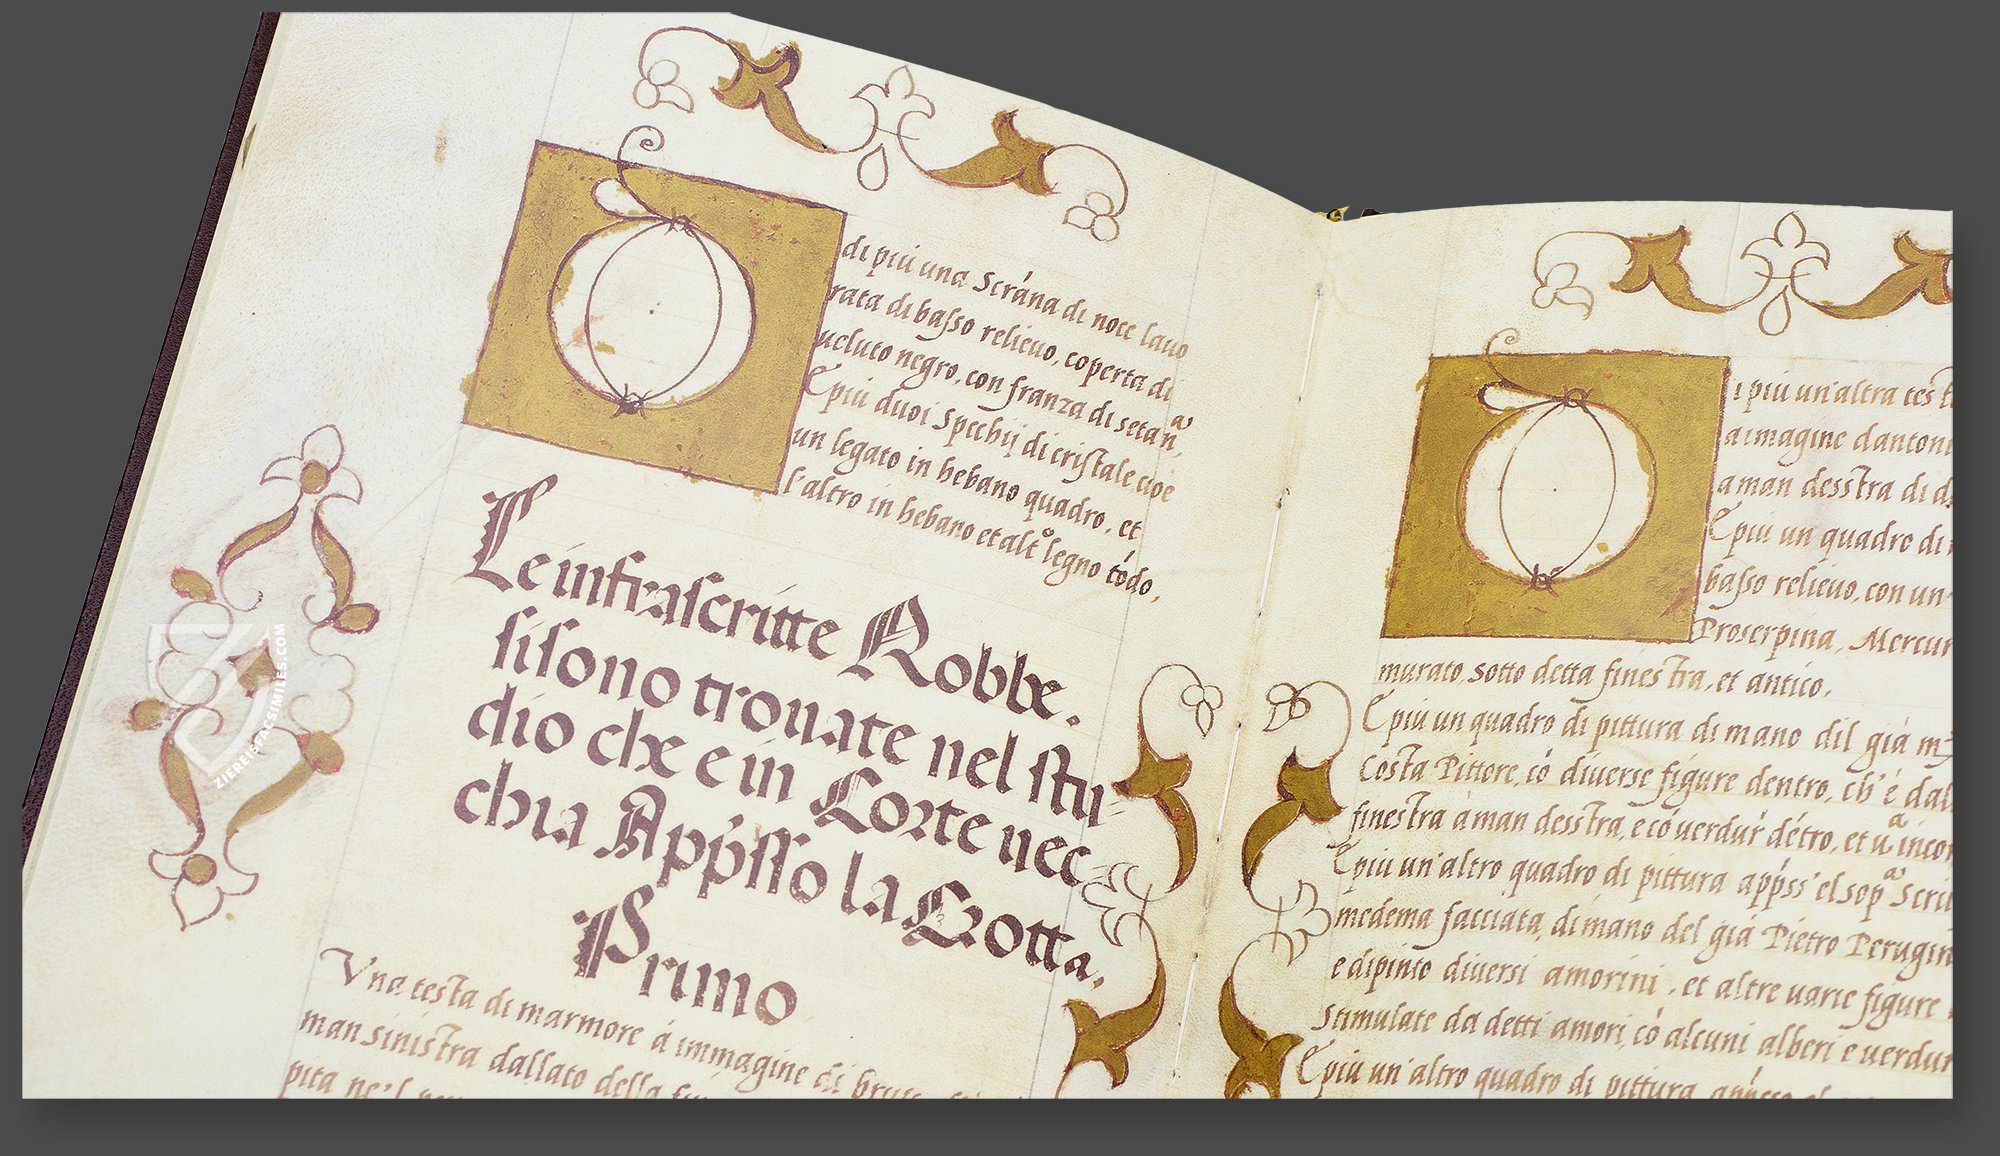 di più una Scrána di noce lauo
rata di basso relieuo, coperta di
ueluto negro, con franza di setan,
E più duoi Spechij di cristale cioè
un legato in hebano quadro, et
l'altro in hebano et alt.º legno tódo,
Le infrascritte Robbe.
si sono trouate nel stu-
dio che e in Corte uec-
chia App̃sso la Grotta.
Primo
Vna testa di marmore á immagine di
man sinistra dallato della
pita ne'l
i più un'altra
a imagine
a man desstra di
E più un quadro di
basso relieuo, con un
Proserpina,
murato, sotto detta finestra, et antico.
E più un quadro di pittura di mano dil già
Costa Pittore, có diuerse figure dentro, ch'é
finestra á man desstra, e có uerdur' détro, et
E più un'altro quadro di pittura app̃ss'
medema facciata, di mano del già Pietro
e dipinto diuersi amorini, et altre uarie figure
Stimulate da detti amori, có alcuni alberi e
E più un'altro quadro di pittura
ZIEREIS FACSIMILES.COM